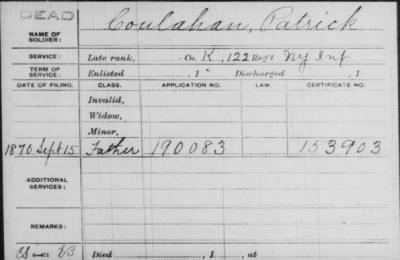 DEAD
NAME OF SOLDIER: Coulahan, Patrick
SERVICE: Late rank, Co. K, 122 Reg't NY Inf
TERM OF SERVICE: Enlisted , 1 Discharged , 1
DATE OF FILING. CLASS. APPLICATION NO. LAW CERTIFICATE NO.
Invalid,
Widow,
Minor,
1870 Sept 15 Father 190083 153903
ADDITIONAL SERVICES:
REMARKS:
Died , 1 , at